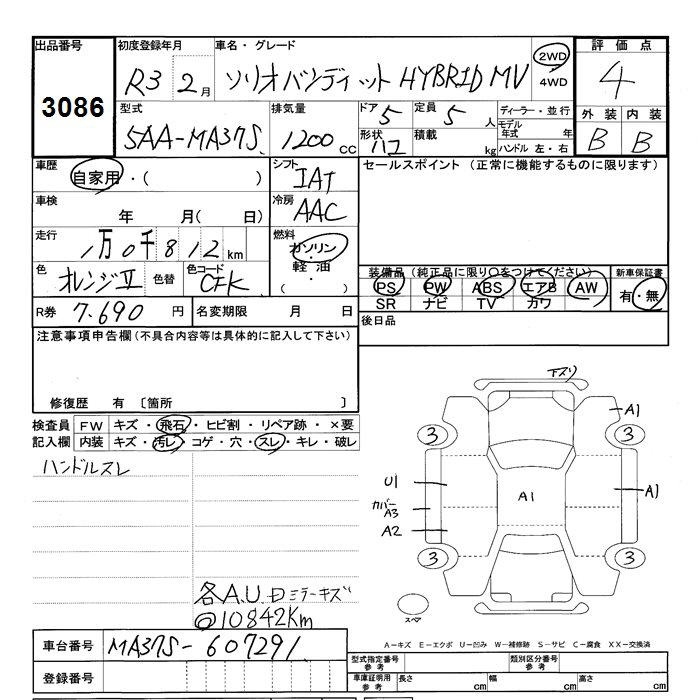 出品番号
3086
初度登録年月
R3 2月
車名・グレード
ソリオバンディット HYBRID MV
2WD
4WD
評価点
4
型式
5AA-MA37S
排気量
1200cc
ドア
5
定員
5人
形状
ハコ
積載
kg
ディーラー・並行
モデル年式 年
ハンドル 左・右
外装 内装
B B
車歴
自家用・( )
シフト
IAT
車検
年 月( 日)
冷房
AAC
走行
1万0千812km
燃料
ガソリン・
軽油・
( )
色
オレンジⅡ
色替
色コード
CFK
R券 7.690円
名変期限 月 日
セールスポイント (正常に機能するものに限ります)
装備品 (純正品に限り○をつけてください)
PS PW ABS エアB AW
SR ナビ TV カワ
新車保証書
有・無
後日品
注意事項申告欄(不具合内容等は具体的に記入して下さい)
修復歴 有 〔箇所 〕
検査員記入欄
FW キズ・飛石・ヒビ割・リペア跡・×要
内装 キズ・汚レ・コゲ・穴・スレ・キレ・破レ
ハンドルスレ
各A.U. Dミラーキズ
@10842Km
下スリ
A1
3
3
U1
カバー
A3
A2
A1
A1
3
3
スペア
A-キズ E-エクボ U-凹み W-補修跡 S-サビ C-腐食 XX-交換済
車台番号 MA37S-607291
登録番号
型式指定番号
参考
類別区分番号
参考
車庫証明用
参考
長さ cm
幅 cm
高さ cm